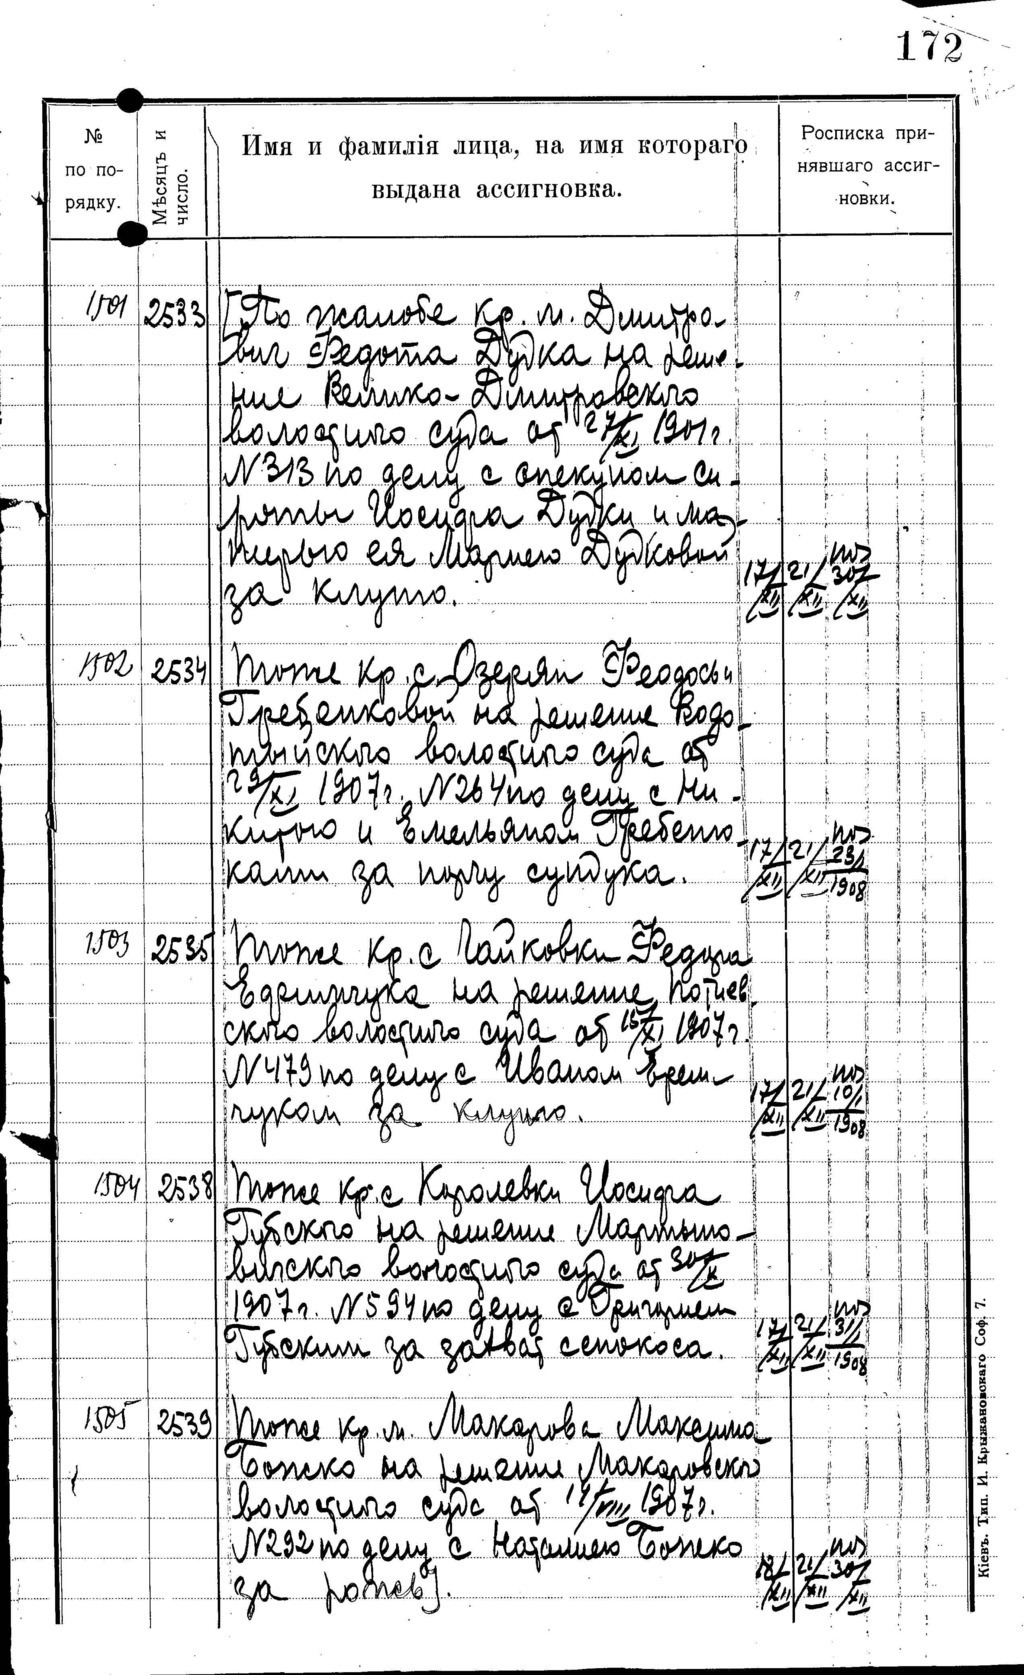 172
№ по по-рядку.
Мѣсяцъ и число.
Имя и фамилія лица, на имя котораго
выдана ассигновка.
Росписка при-
нявшаго ассиг-
новки.
1501 2533 [По жалобе кр. м. Дмитро-
вич Федота Дудка на реше-
ние Велико-Дмитровского
волостного суда от 27/XI 1901 г.
N 313 по делу с опекуном си-
роты Иосифа Дудки и ма-
терью ея Мариею Дудковой
за клуню.
17/XII 21/XII 30/XII
1502 2534 Тоже кр. с. Озерян Феодосьи
Гребенковой на решение Водо-
тыйского волостного суда от
29/XI 1907 г. N 264 по делу с Ни-
китою и Емельяном Гребеню-
ками за порчу сундука.
17/XII 21/XII 23/1 1908
1503 2535 Тоже кр. с Чайковки Федора
на решение Потиев-
ского волостного суда от 15/XI 1907 г.
N 479 по делу с Иваном Ерем-
чуком за клуню.
17/XII 21/XII 10/1 1908
1504 2538 Тоже кр. с Королевки Иосифа
Губского на решение Мартыно-
вичского волостного суда от 30/X
1907 г. N 594 по делу с Григорием
Губским за захват сенокоса.
17/XII 21/XII 31/1 1908
1505 2539 Тоже кр. м. Макарова Максима
Божко на решение Макаровского
волостного суда от /VIII 1907 г.
N 292 по делу с Наталиею Божко
за ].
18/XII 21/XII 30/XII
Кіевъ. Тип. И. Крыжановскаго Соф. 7.